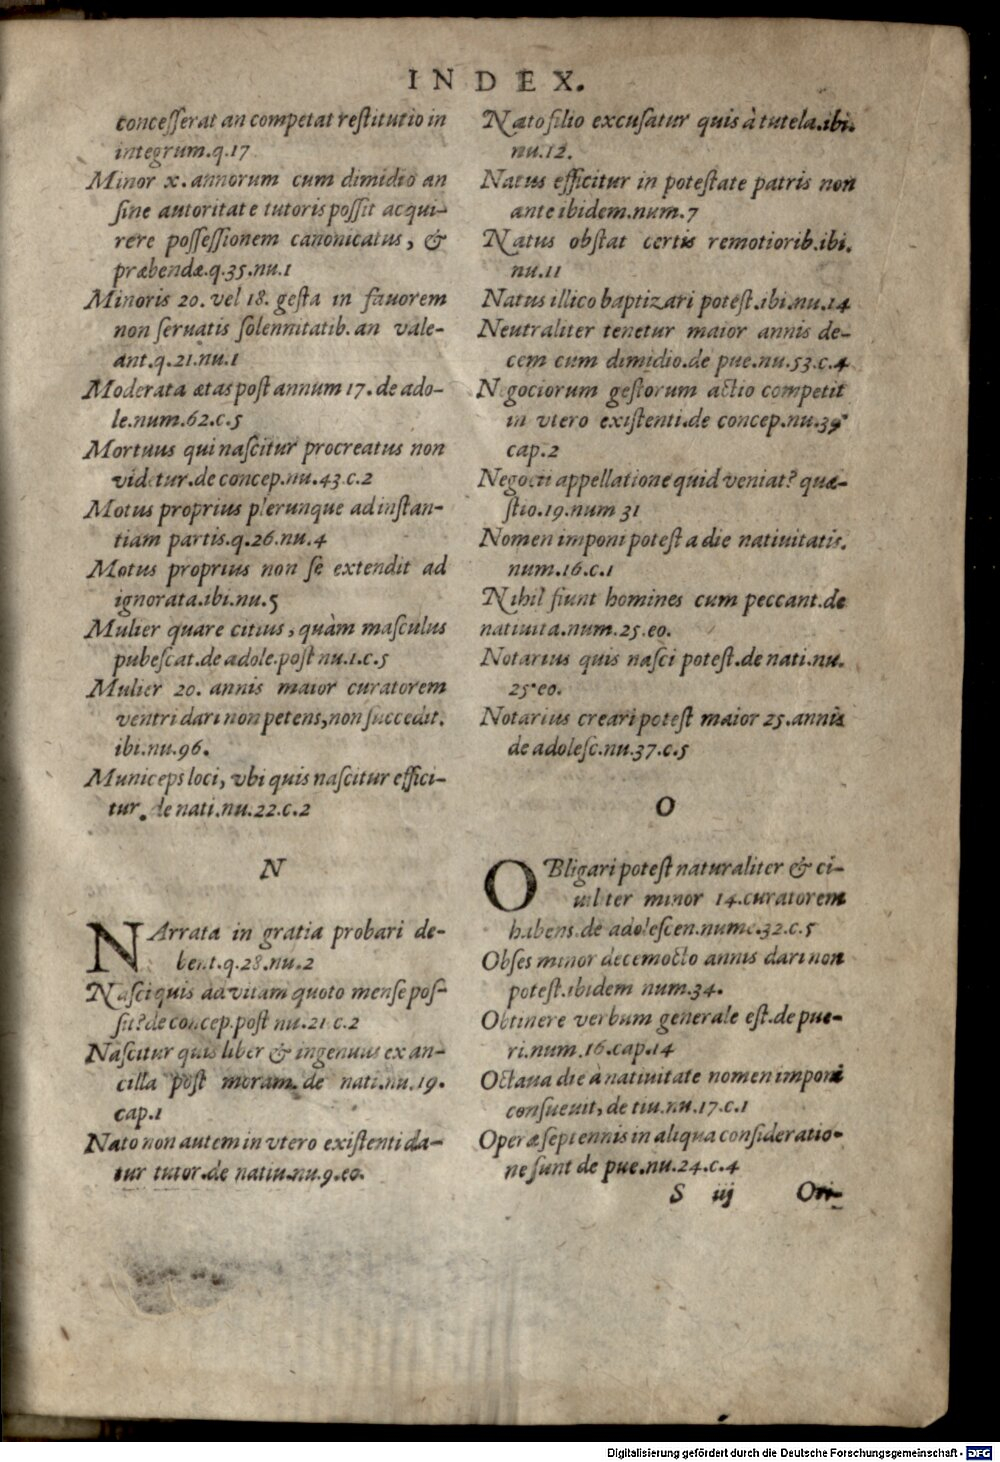 INDEX.
concesserat an competat restitutio in
integrum.q.17
Minor x. annorum cum dimidio an
sine autoritate tutoris possit acqui-
rere possessionem canonicatus, &
præbendæ.q.35.nu.1
Minoris 20. vel 18. gesta in fauorem
non seruatis solennitatib. an vale-
ant.q.21.nu.1
Moderata ætas post annum 17. de ado-
le.num.62.c.5
Mortuus qui nascitur procreatus non
videtur.de concep.nu.43.c.2
Motus proprius plerunque ad instan-
tiam partis.q.26.nu.4
Motus proprius non se extendit ad
ignorata.ibi.nu.5
Mulier quare citius, quàm masculus
pubescat.de adole.post nu.1.c.5
Mulier 20. annis maior curatorem
ventri dari non petens, non succedit.
ibi.nu.96.
Municeps loci, vbi quis nascitur effici-
tur. de nati.nu.22.c.2
N
NArrata in gratia probari de-
bent.q.28.nu.2
Nasci quis ad vitam quoto mense pos-
sit? de concep.post nu.21 c.2
Nascitur quis liber & ingenuus ex an-
cilla post moram. de nati.nu.19.
cap.1
Nato non autem in vtero existenti da-
tur tutor.de natiu.nu.9.eo.
Nato filio excusatur quis à tutela.ibi.
nu.12.
Natus efficitur in potestate patris non
ante ibidem.num.7
Natus obstat certis remotiorib.ibi.
nu.11
Natus illico baptizari potest.ibi.nu.14
Neutraliter tenetur maior annis de-
cem cum dimidio.de pue.nu.53.c.4
Negociorum gestorum actio competit
in vtero existenti.de concep.nu.39
cap.2
Negocii appellatione quid veniat? quæ-
stio.19.num 31
Nomen imponi potest a die natiuitatis.
num.16.c.1
Nihil fiunt homines cum peccant.de
natiuita.num.25.eo.
Notarius quis nasci potest.de nati.nu.
25.eo.
Notarius creari potest maior 25.annis
de adolesc.nu.37.c.5
O
OBligari potest naturaliter & ci-
uiliter minor 14.curatorem
habens.de adolescen.nume.32.c.5
Obses minor decemocto annis dari non
potest.ibidem num.34.
Obtinere verbum generale est.de pue-
ri.num.16.cap.14
Octaua die à natiuitate nomen imponi
consueuit, de tiu.nu.17.c.1
Operæ septennis in aliqua consideratio-
ne sunt de pue.nu.24.c.4
S iij Ori-
Digitalisierung gefördert durch die Deutsche Forschungsgemeinschaft - DFG